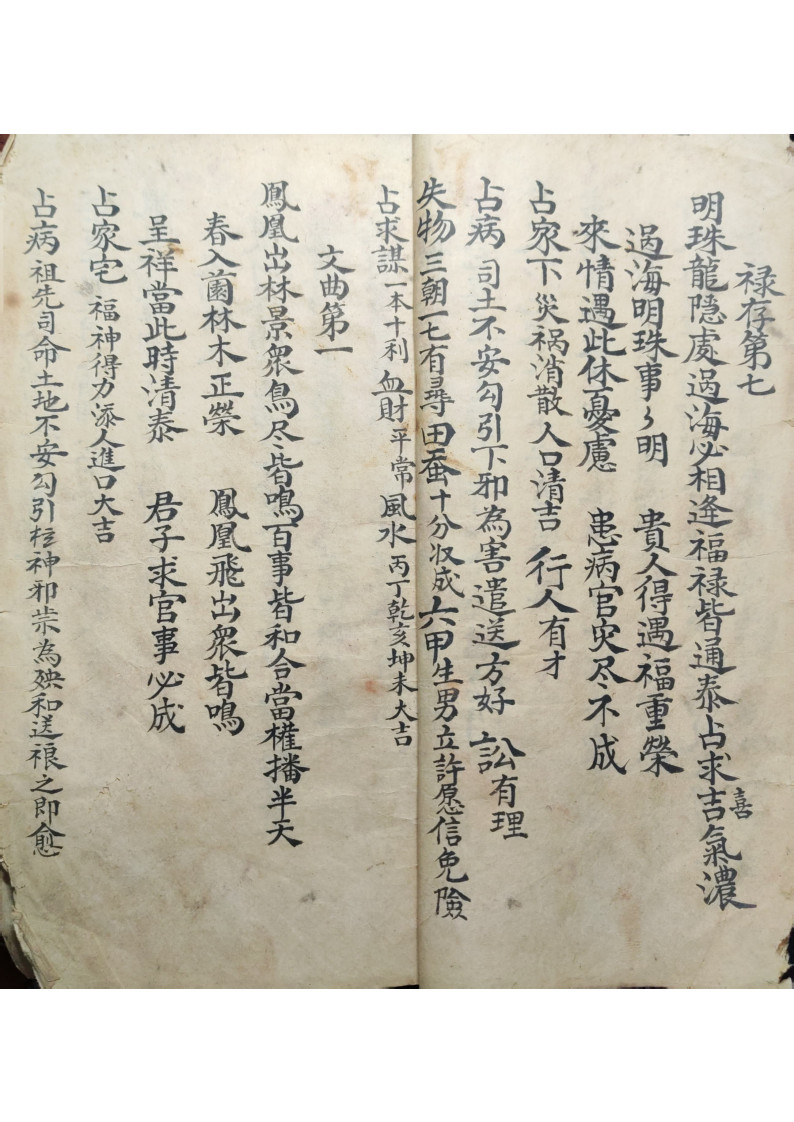 禄存第七
明珠龍隱處過海必相逢福禄皆通泰占求吉喜氣濃
過海明珠事〻明　貴人得遇福重榮
來情遇此休憂慮　患病官灾尽不成
占家下災禍消散人口清吉　行人有才
占病司土不安勾引下邪為害遣送方好　訟有理
失物三朝一七有尋田蚕十分收成六甲生男立許愿信免險
占求謀一本十利　血財平常風水丙丁乾亥坤未大吉
文曲第一
鳳凰出林景衆鳥尽皆鳴百事皆和合當權播半天
春入薗林木正榮　鳳凰飛出衆皆鳴
呈祥當此時清泰　君子求官事必成
占家宅　福神得力添人進口大吉
占病祖先司命土地不安勾引神邪祟為殃和送之即愈